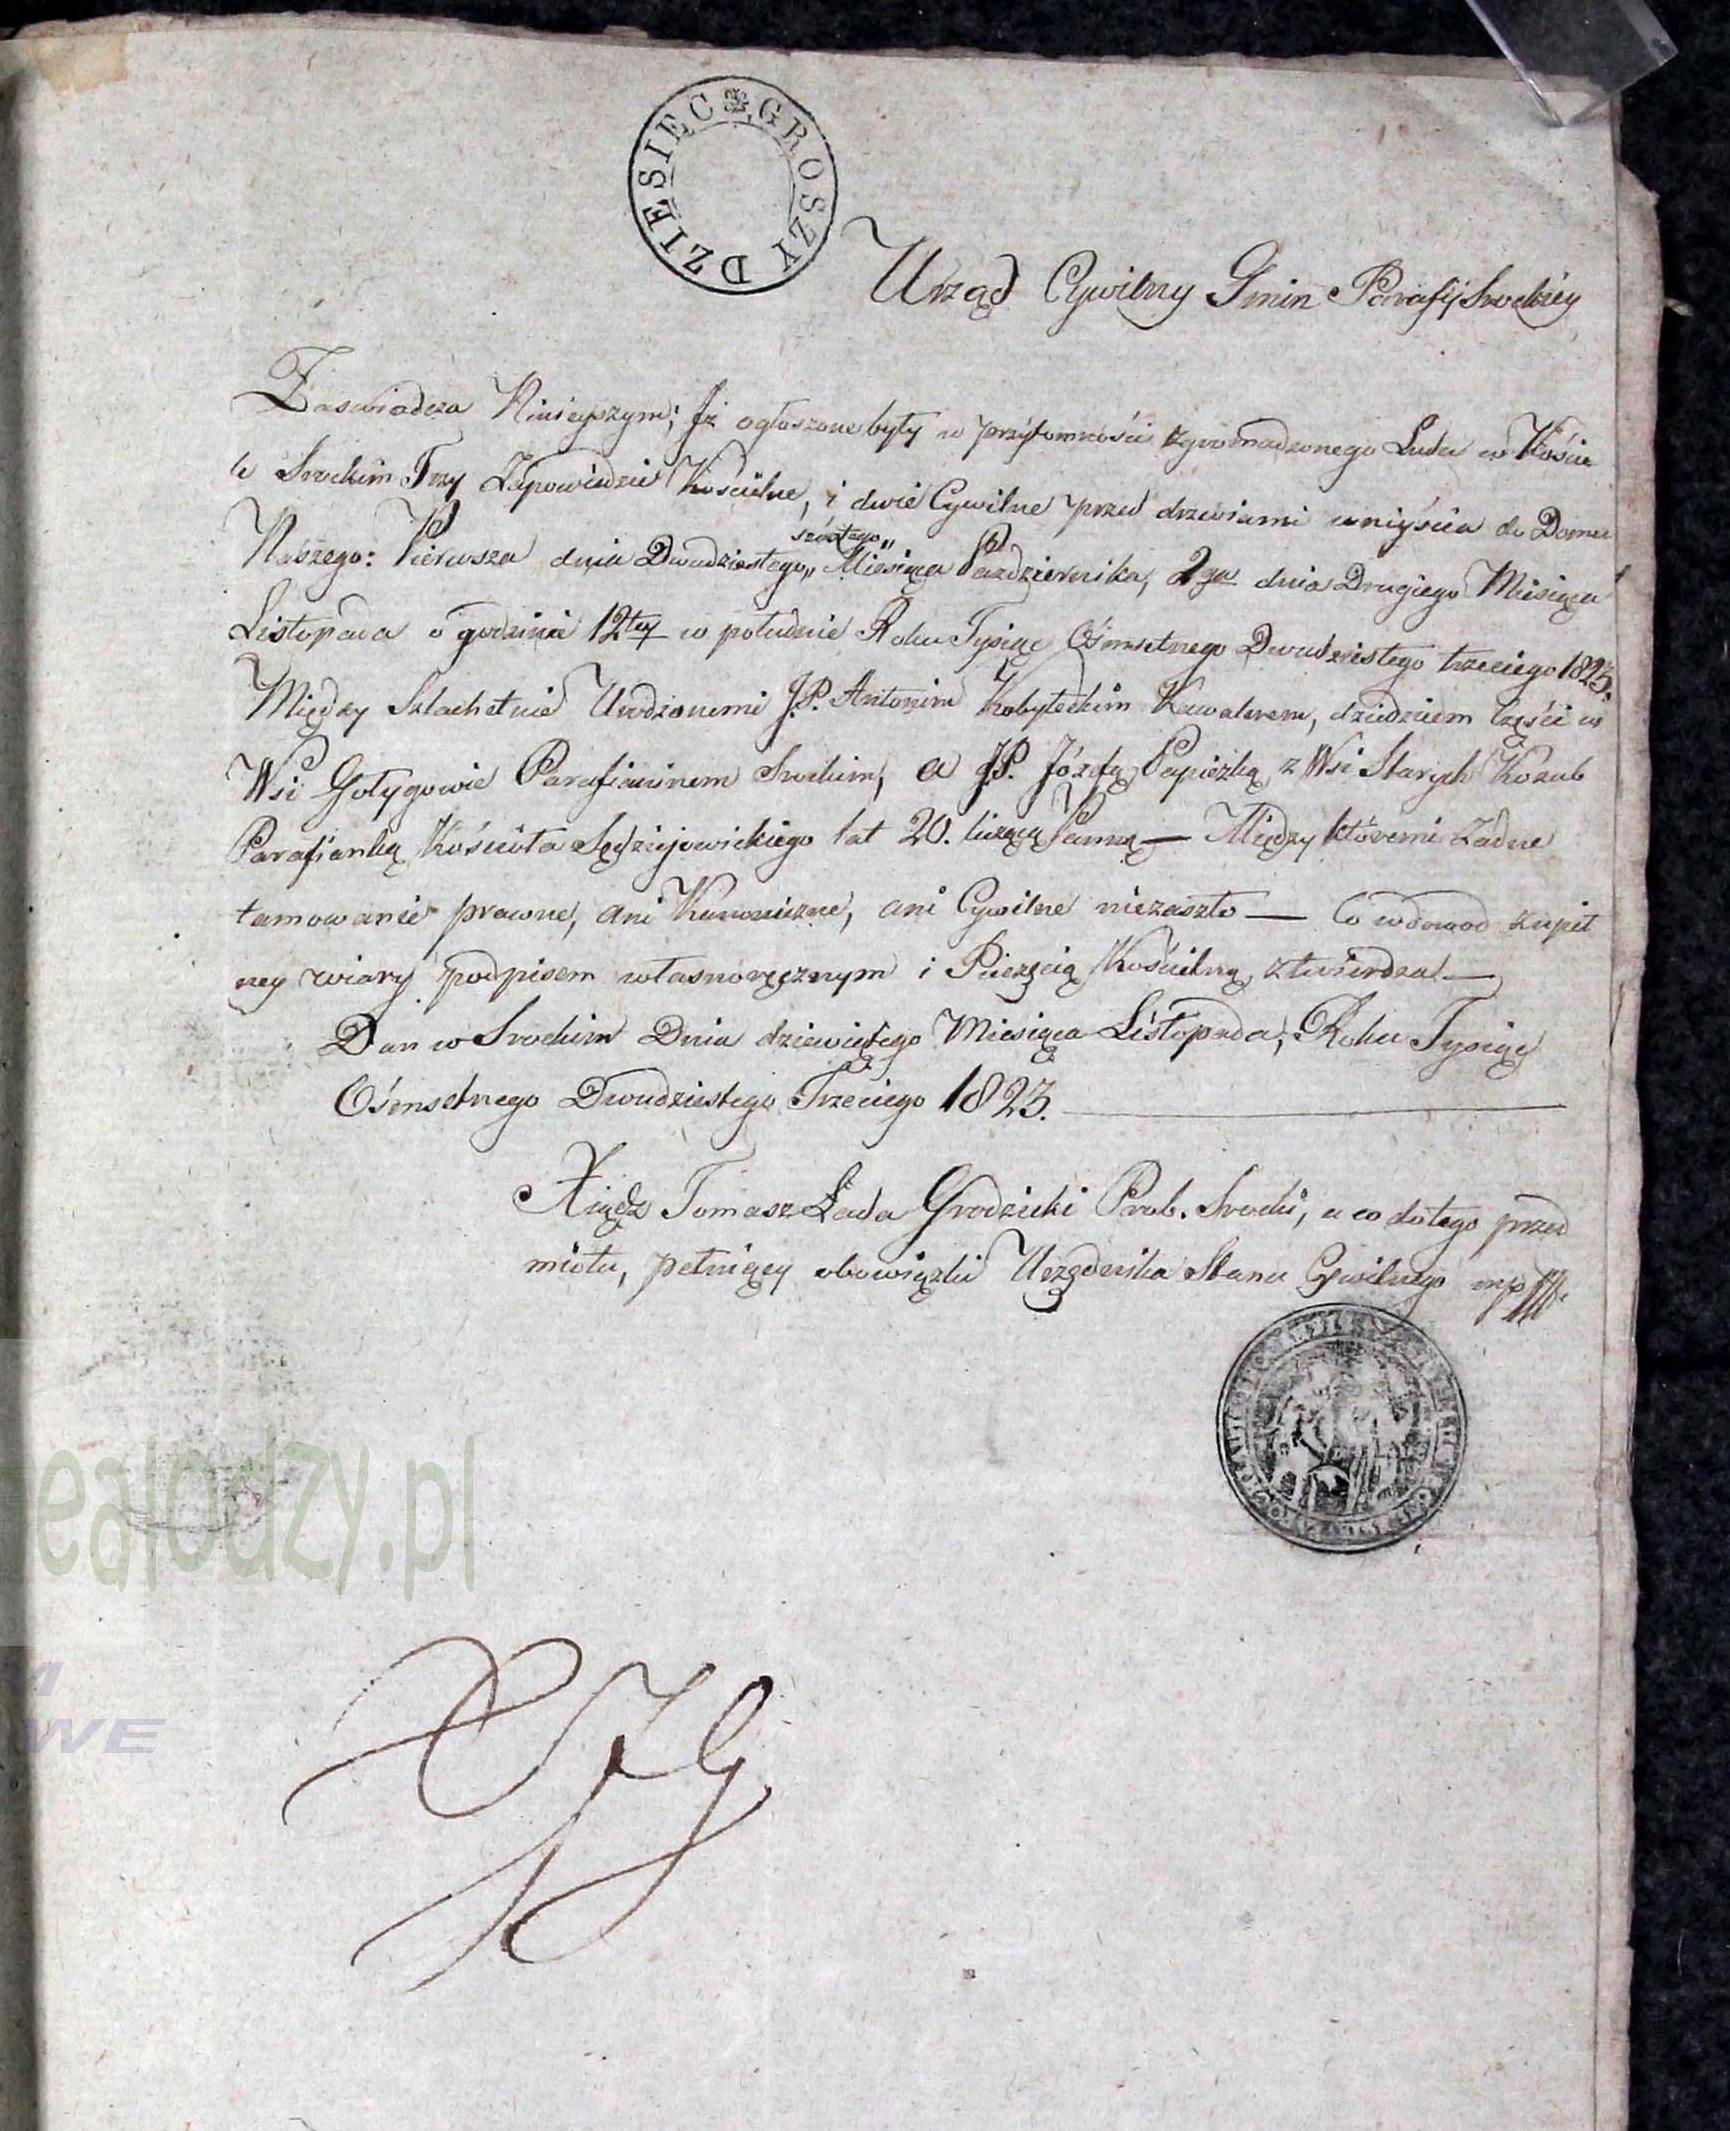 DZIESIĘC GROSZY
Urząd Cywilny Gmin Parafij Srockiey
Zaswiadcza Ninieyszym; Jż ogłoszone były w przytomności zgromadzonego Ludu w Kościo
le Srockim Trzy Zapowiedzie Kościelne, i dwie Cywilne przed drzwiami wniyścia do Domu
szóstego„
Naszego: Pierwsza dnia Dwudziestego„ Miesiąca Października, 2ga dnia Drugiego Miesiąca
Listopada o godzinie 12tey w południe Roku Tysiąc Ośmsetnego Dwudziestego trzeciego 1823.
Między Szlachetnie Urodzonemi J.P. Antonim Kobyłeckim Kawalerem, dziedzicem Części w
Wsi Gołygowie Parafianinem Srockim, a JP. Józefą Papiezką z Wsi Starych Kozub
Parafianką Kościoła Sędziejowickiego lat 20. liczącą Panną — Między któremi żadne
tamowanie prawne, ani Kanoniczne, ani Cywilne niezaszło — Co w dowod zupeł
ney wiary podpisem własnoręcznym i Pieczęcią Kościelną ztwierdza —
Dan w Srockim Dnia dziewiątego Miesiąca Listopada, Roku Tysiąc
Ośmsetnego Dwudziestego Trzeciego 1823.
Xiądz Tomasz Łada Grodzicki Prob. Srocki, a co do tego przed
miotu, pełniący obowiązki Urzędnika Stanu Cywilnego mp
nealodzy.pl
M
WE